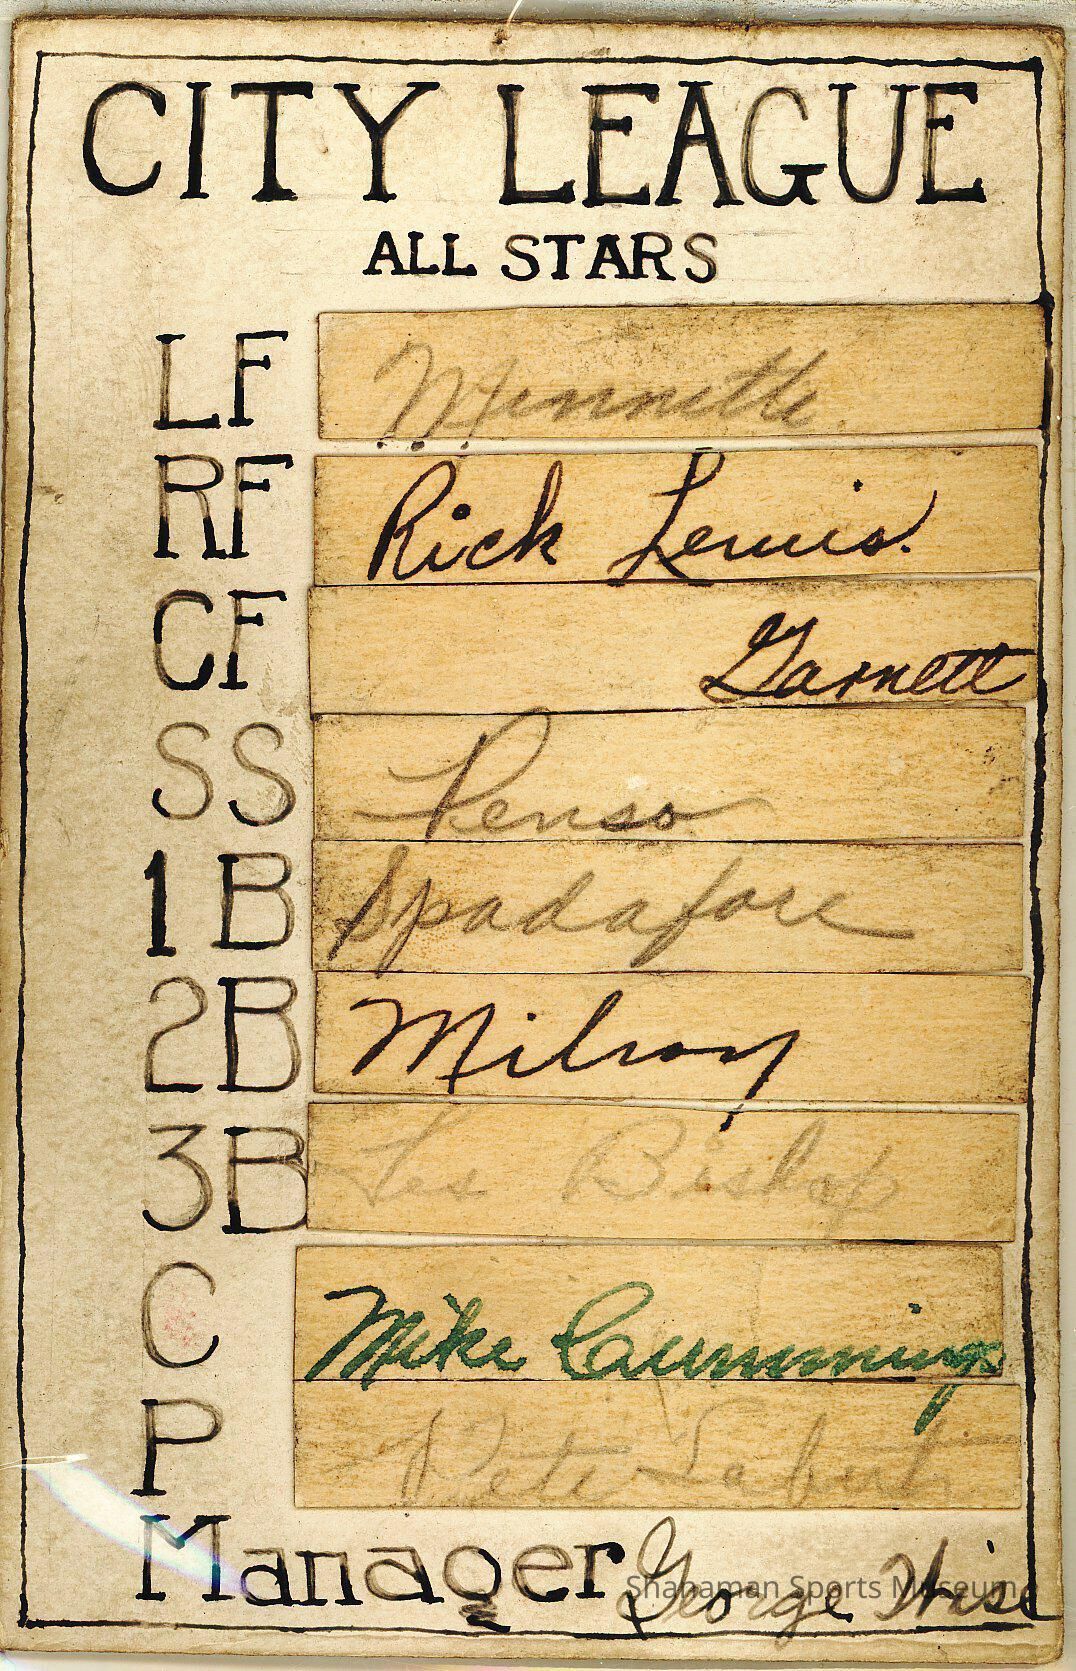 CITY LEAGUE
ALL STARS
LF Minnette
RF Rick Lewis.
CF Garnett
SS Penso
1B Spadafore
2B Milroy
3B Les Bishop
C Mike Cummings
P Pete
Manager George Wise
Shanaman Sports Museum